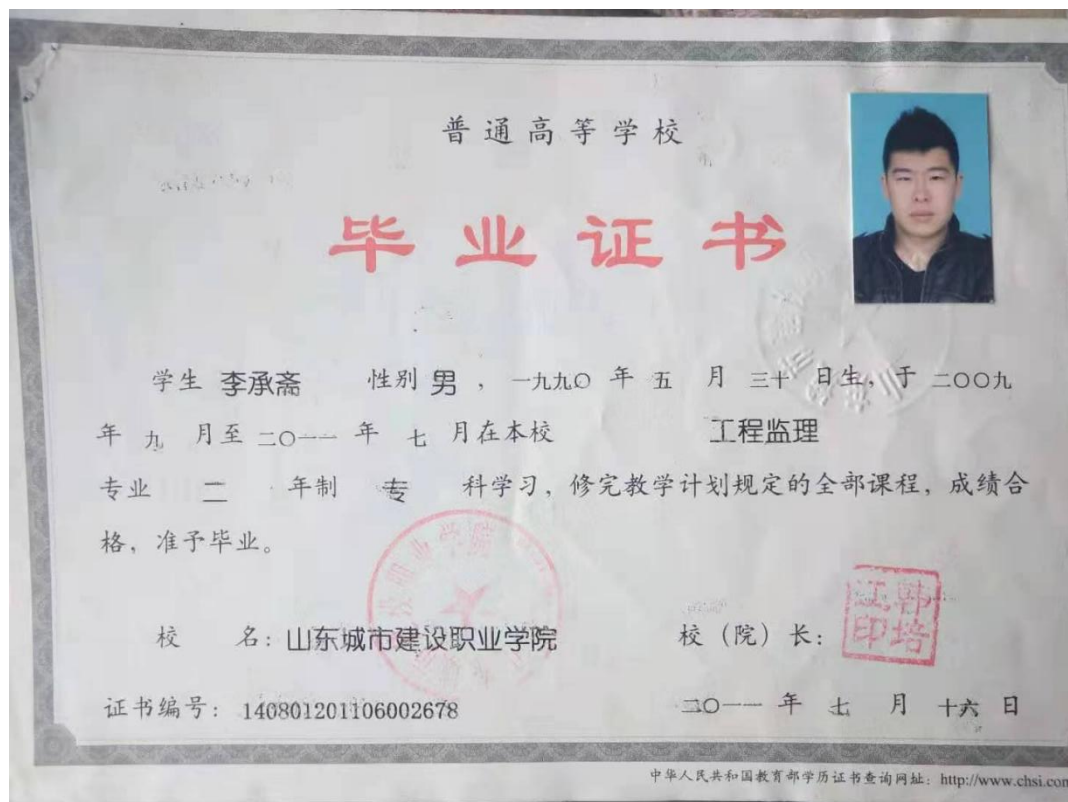 普通高等学校
毕业证书
学生 李承斋 性别 男 ，一九九〇 年 五 月 三十 日生，于 二〇〇九
年 九 月至 二〇一一 年 七 月在本校 工程监理
专业 二 年制 专 科学习，修完教学计划规定的全部课程，成绩合
格，准予毕业。
校 名：山东城市建设职业学院
校（院）长：
韩培江印
证书编号：140801201106002678
二〇一一 年 七 月 十六 日
中华人民共和国教育部学历证书查询网址：http://www.chsi.com